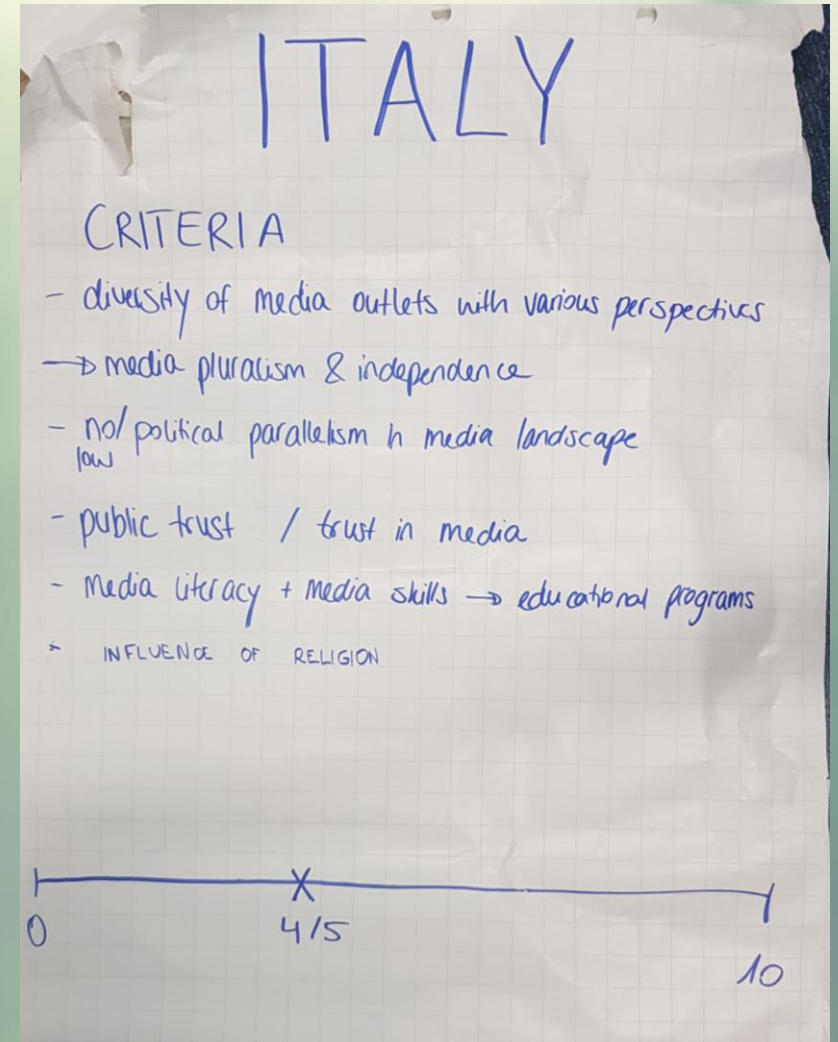 ITALY
CRITERIA
- diversity of media outlets with various perspectives
→ media pluralism & independence
- no/political parallelism in media landscape
low
- public trust / trust in media
- media literacy + media skills → educational programs
* INFLUENCE OF RELIGION
0
4/5
10